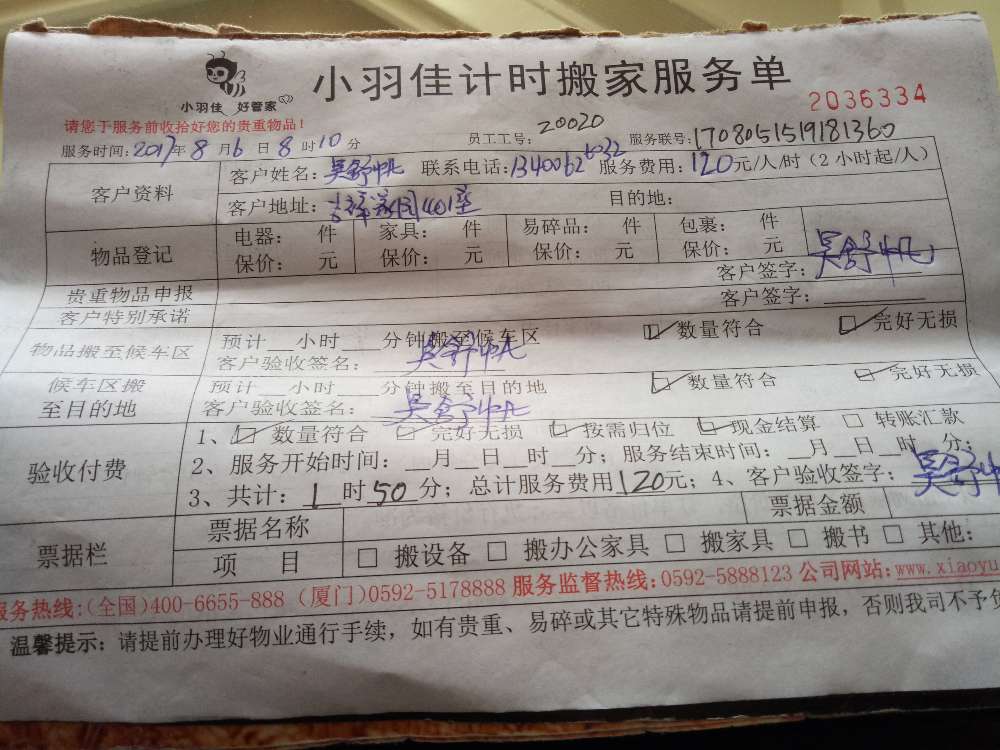 小羽佳 好管家
小羽佳计时搬家服务单
2036334
请您于服务前收拾好您的贵重物品!
服务时间:2017年8月6日8时10分 员工工号:20020 服务联号:1708051519181360
客户资料 客户姓名:吴舒帆 联系电话:13400626032 服务费用:120元/人/时(2小时起/人)
客户地址:吉祥家园401室 目的地:
物品登记 电器: 件 家具: 件 易碎品: 件 包裹: 件
保价: 元 保价: 元 保价: 元 保价: 元
客户签字:吴舒帆
贵重物品申报 客户签字:
客户特别承诺
物品搬至候车区 预计__小时__分钟搬至候车区 ☑数量符合 ☑完好无损
客户验收签名:吴舒帆
候车区搬至目的地 预计__小时__分钟搬至目的地 ☑数量符合 ☑完好无损
客户验收签名:吴舒帆
验收付费 1、☑数量符合 ☑完好无损 ☑按需归位 ☑现金结算 □转账汇款
2、服务开始时间:__月__日__时__分;服务结束时间:__月__日__时__分;
3、共计:1时50分;总计服务费用120元;4、客户验收签字:吴舒帆
票据栏 票据名称 票据金额
项目 □搬设备 □搬办公家具 □搬家具 □搬书 □其他:
服务热线:(全国)400-6655-888 (厦门)0592-5178888 服务监督热线:0592-5888123 公司网站:www.xiaoyu
温馨提示:请提前办理好物业通行手续,如有贵重、易碎或其它特殊物品请提前申报,否则我司不予